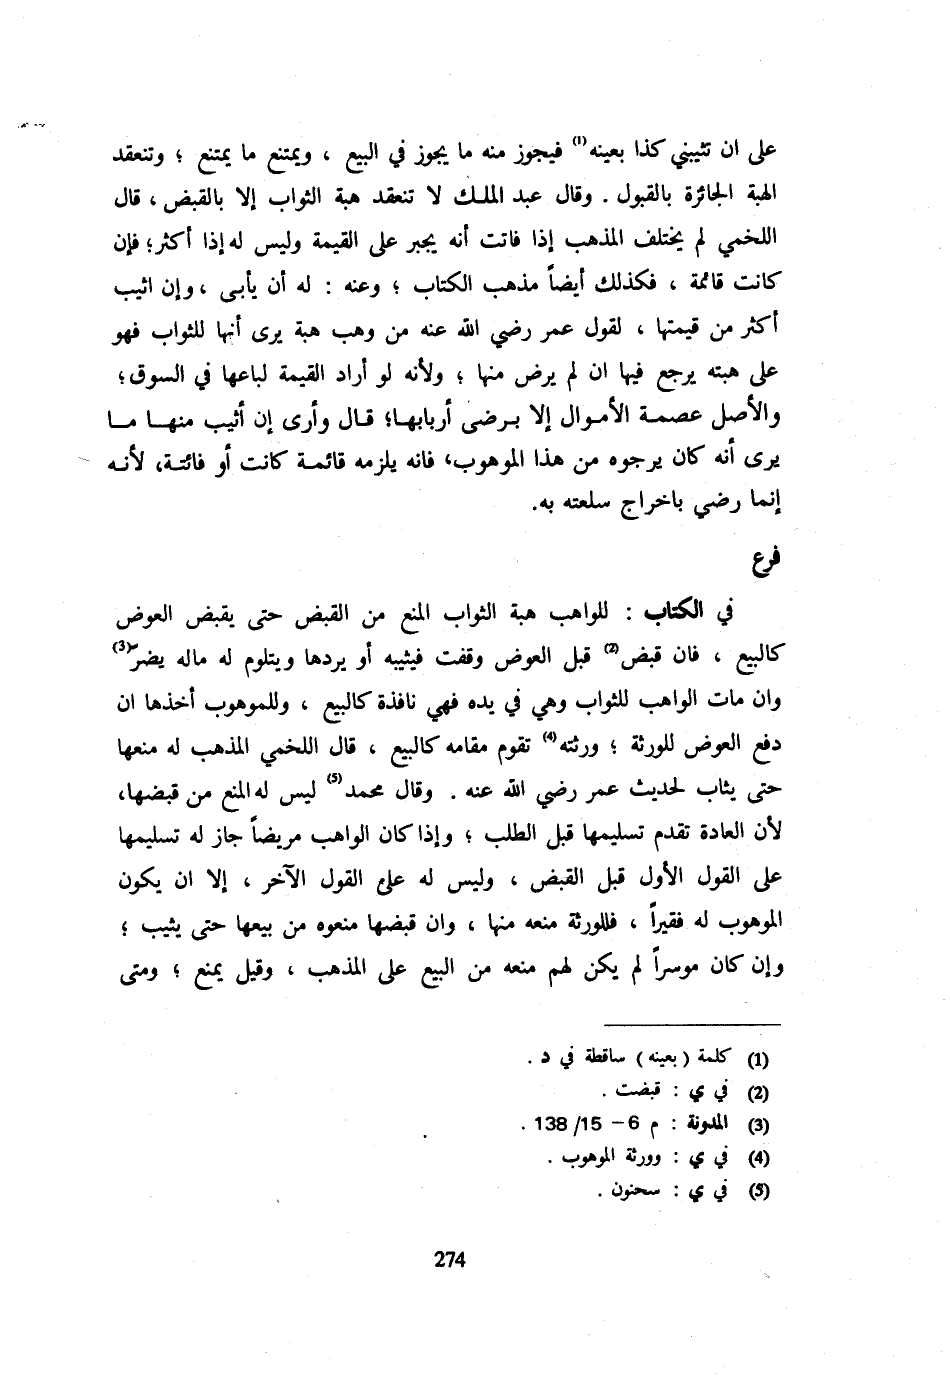 على ان تثيبني كذا بعينه(1) فيجوز منه ما يجوز في البيع ، ويمتنع ما يمتنع ؛ وتنعقد
الهبة الجائزة بالقبول . وقال عبد الملك لا تنعقد هبة الثواب إلا بالقبض ، قال
اللخمي لم يختلف المذهب إذا فاتت أنه يجبر على القيمة وليس له إذا أكثر؛ فإن
كانت قائمة ، فكذلك أيضاً مذهب الكتاب ؛ وعنه : له أن يأبى ، وإن اثيب
أكثر من قيمتها ، لقول عمر رضي الله عنه من وهب هبة يرى أنها للثواب فهو
على هبته يرجع فيها ان لم يرض منها ؛ ولأنه لو أراد القيمة لباعها في السوق؛
والأصل عصمة الأموال إلا برضى أربابها؛ قال وأرى إن أثيب منها ما
يرى أنه كان يرجوه من هذا الموهوب، فانه يلزمه قائمة كانت أو فائتة، لأنه
إنما رضي باخراج سلعته به.
فرع
في الكتاب : للواهب هبة الثواب المنع من القبض حتى يقبض العوض
كالبيع ، فان قبض(2) قبل العوض وقفت فيثيبه أو يردها ويتلوم له ماله يضر(3)
وان مات الواهب للثواب وهي في يده فهي نافذة كالبيع ، وللموهوب أخذها ان
دفع العوض للورثة ؛ ورثته(4) تقوم مقامه كالبيع ، قال اللخمي المذهب له منعها
حتى يثاب لحديث عمر رضي الله عنه . وقال محمد(5) ليس له المنع من قبضها،
لأن العادة تقدم تسليمها قبل الطلب ؛ وإذا كان الواهب مريضاً جاز له تسليمها
على القول الأول قبل القبض ، وليس له على القول الآخر ، إلا ان يكون
الموهوب له فقيراً ، فللورثة منعه منها ، وان قبضها منعوه من بيعها حتى يثيب ؛
وإن كان موسراً لم يكن لهم منعه من البيع على المذهب ، وقيل يمنع ؛ ومتى
(1) كلمة ( بعينه ) ساقطة في د .
(2) في ي : قبضت .
(3) المدونة : م 6 – 15/ 138 .
(4) في ي : وورثة الموهوب .
(5) في ي : سحنون .
274